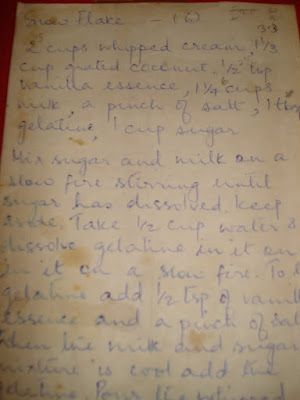 Snow Flake - (6)
33
2 cups whipped cream, 1 1/3
cup grated coconut, 1/2 tsp
vanilla essence, 1 1/4 cups
milk, a pinch of salt, 1 tbsp
gelatine, 1 cup sugar
Mix sugar and milk on a
slow fire stirring until
sugar has dissolved. Keep
aside. Take 1/2 cup water &
dissolve gelatine in it on
in it on a slow fire. To
gelatine add 1/2 tsp of vanill
essence and a pinch of salt
when the milk and sugar
mixture is cool add the
gelatine. Pour the whipped